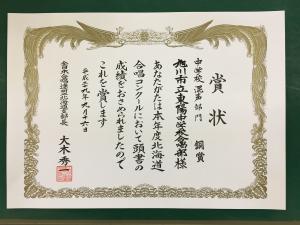 賞状
中学校 混声部門 銅賞
旭川市立東陽中学校合唱部様
あなたがたは本年度北海道
合唱コンクールにおいて頭書の
成績をおさめられましたので
これを賞します
平成二十九年九月十六日
全日本合唱連盟北海道支部長
大木秀一